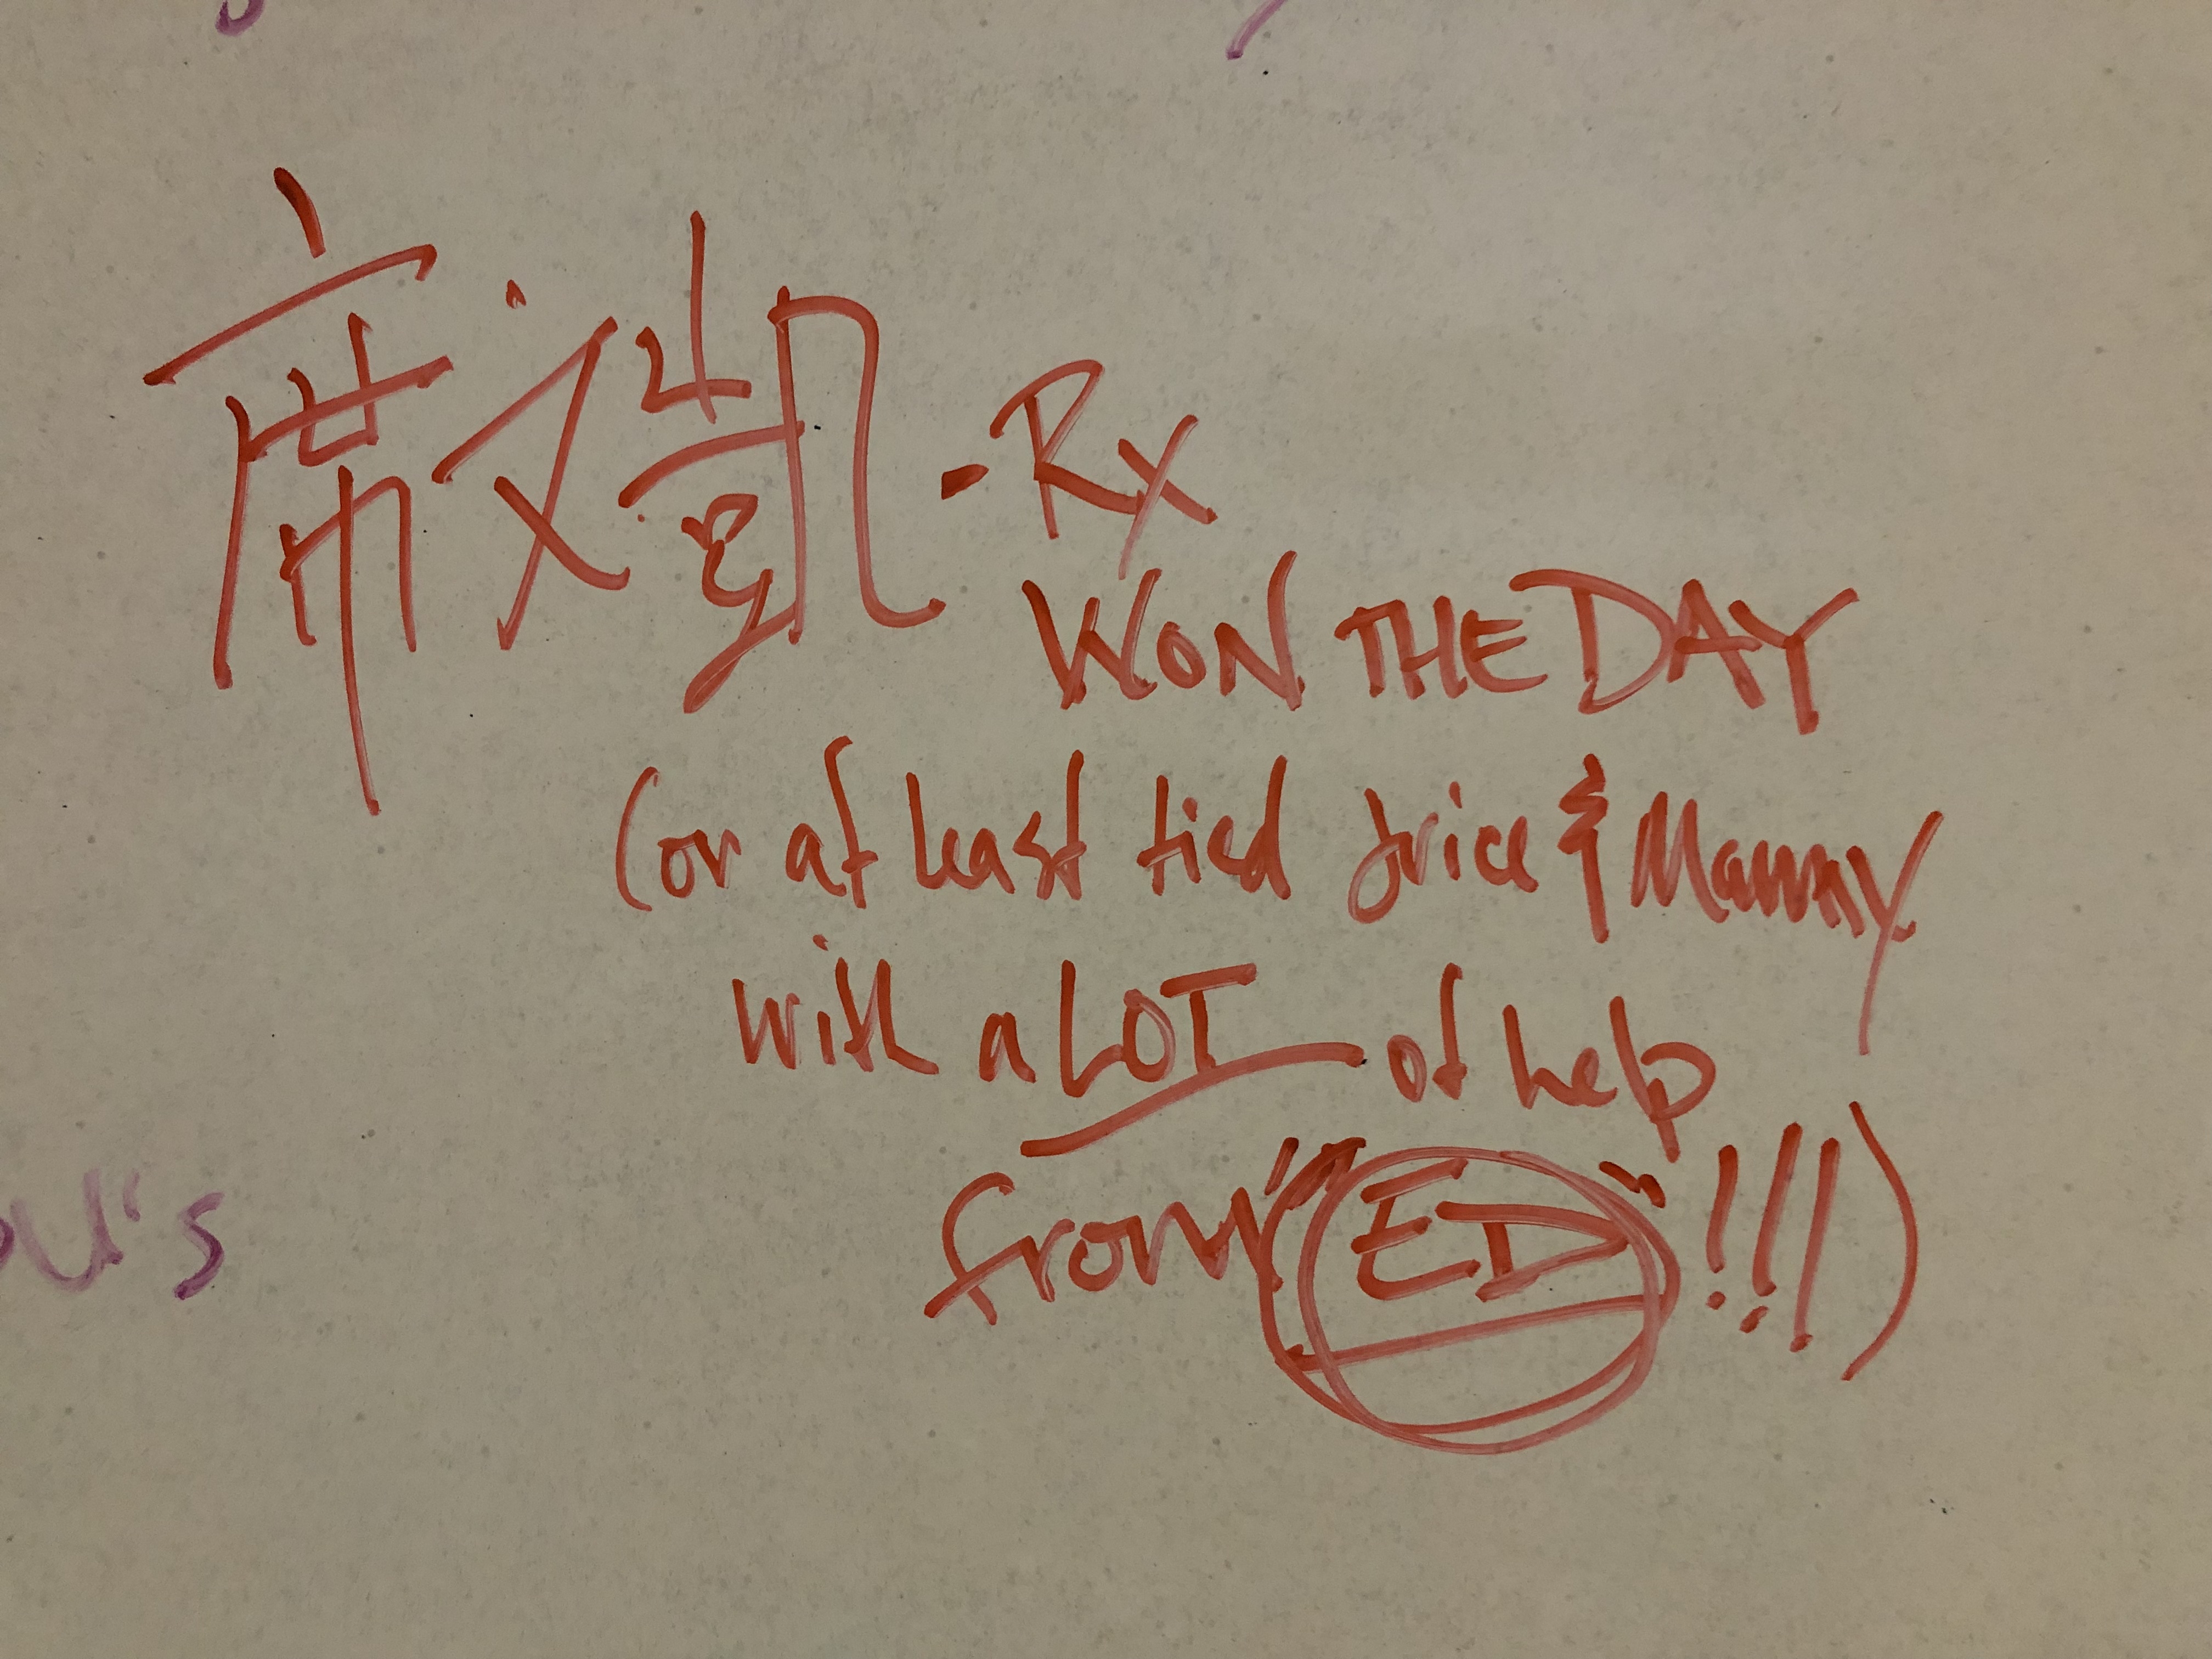 席文凱 - Rx
WON THE DAY
(or at least tied Jrice & Manny
with a LOT of help
from "ED" !!!)
's